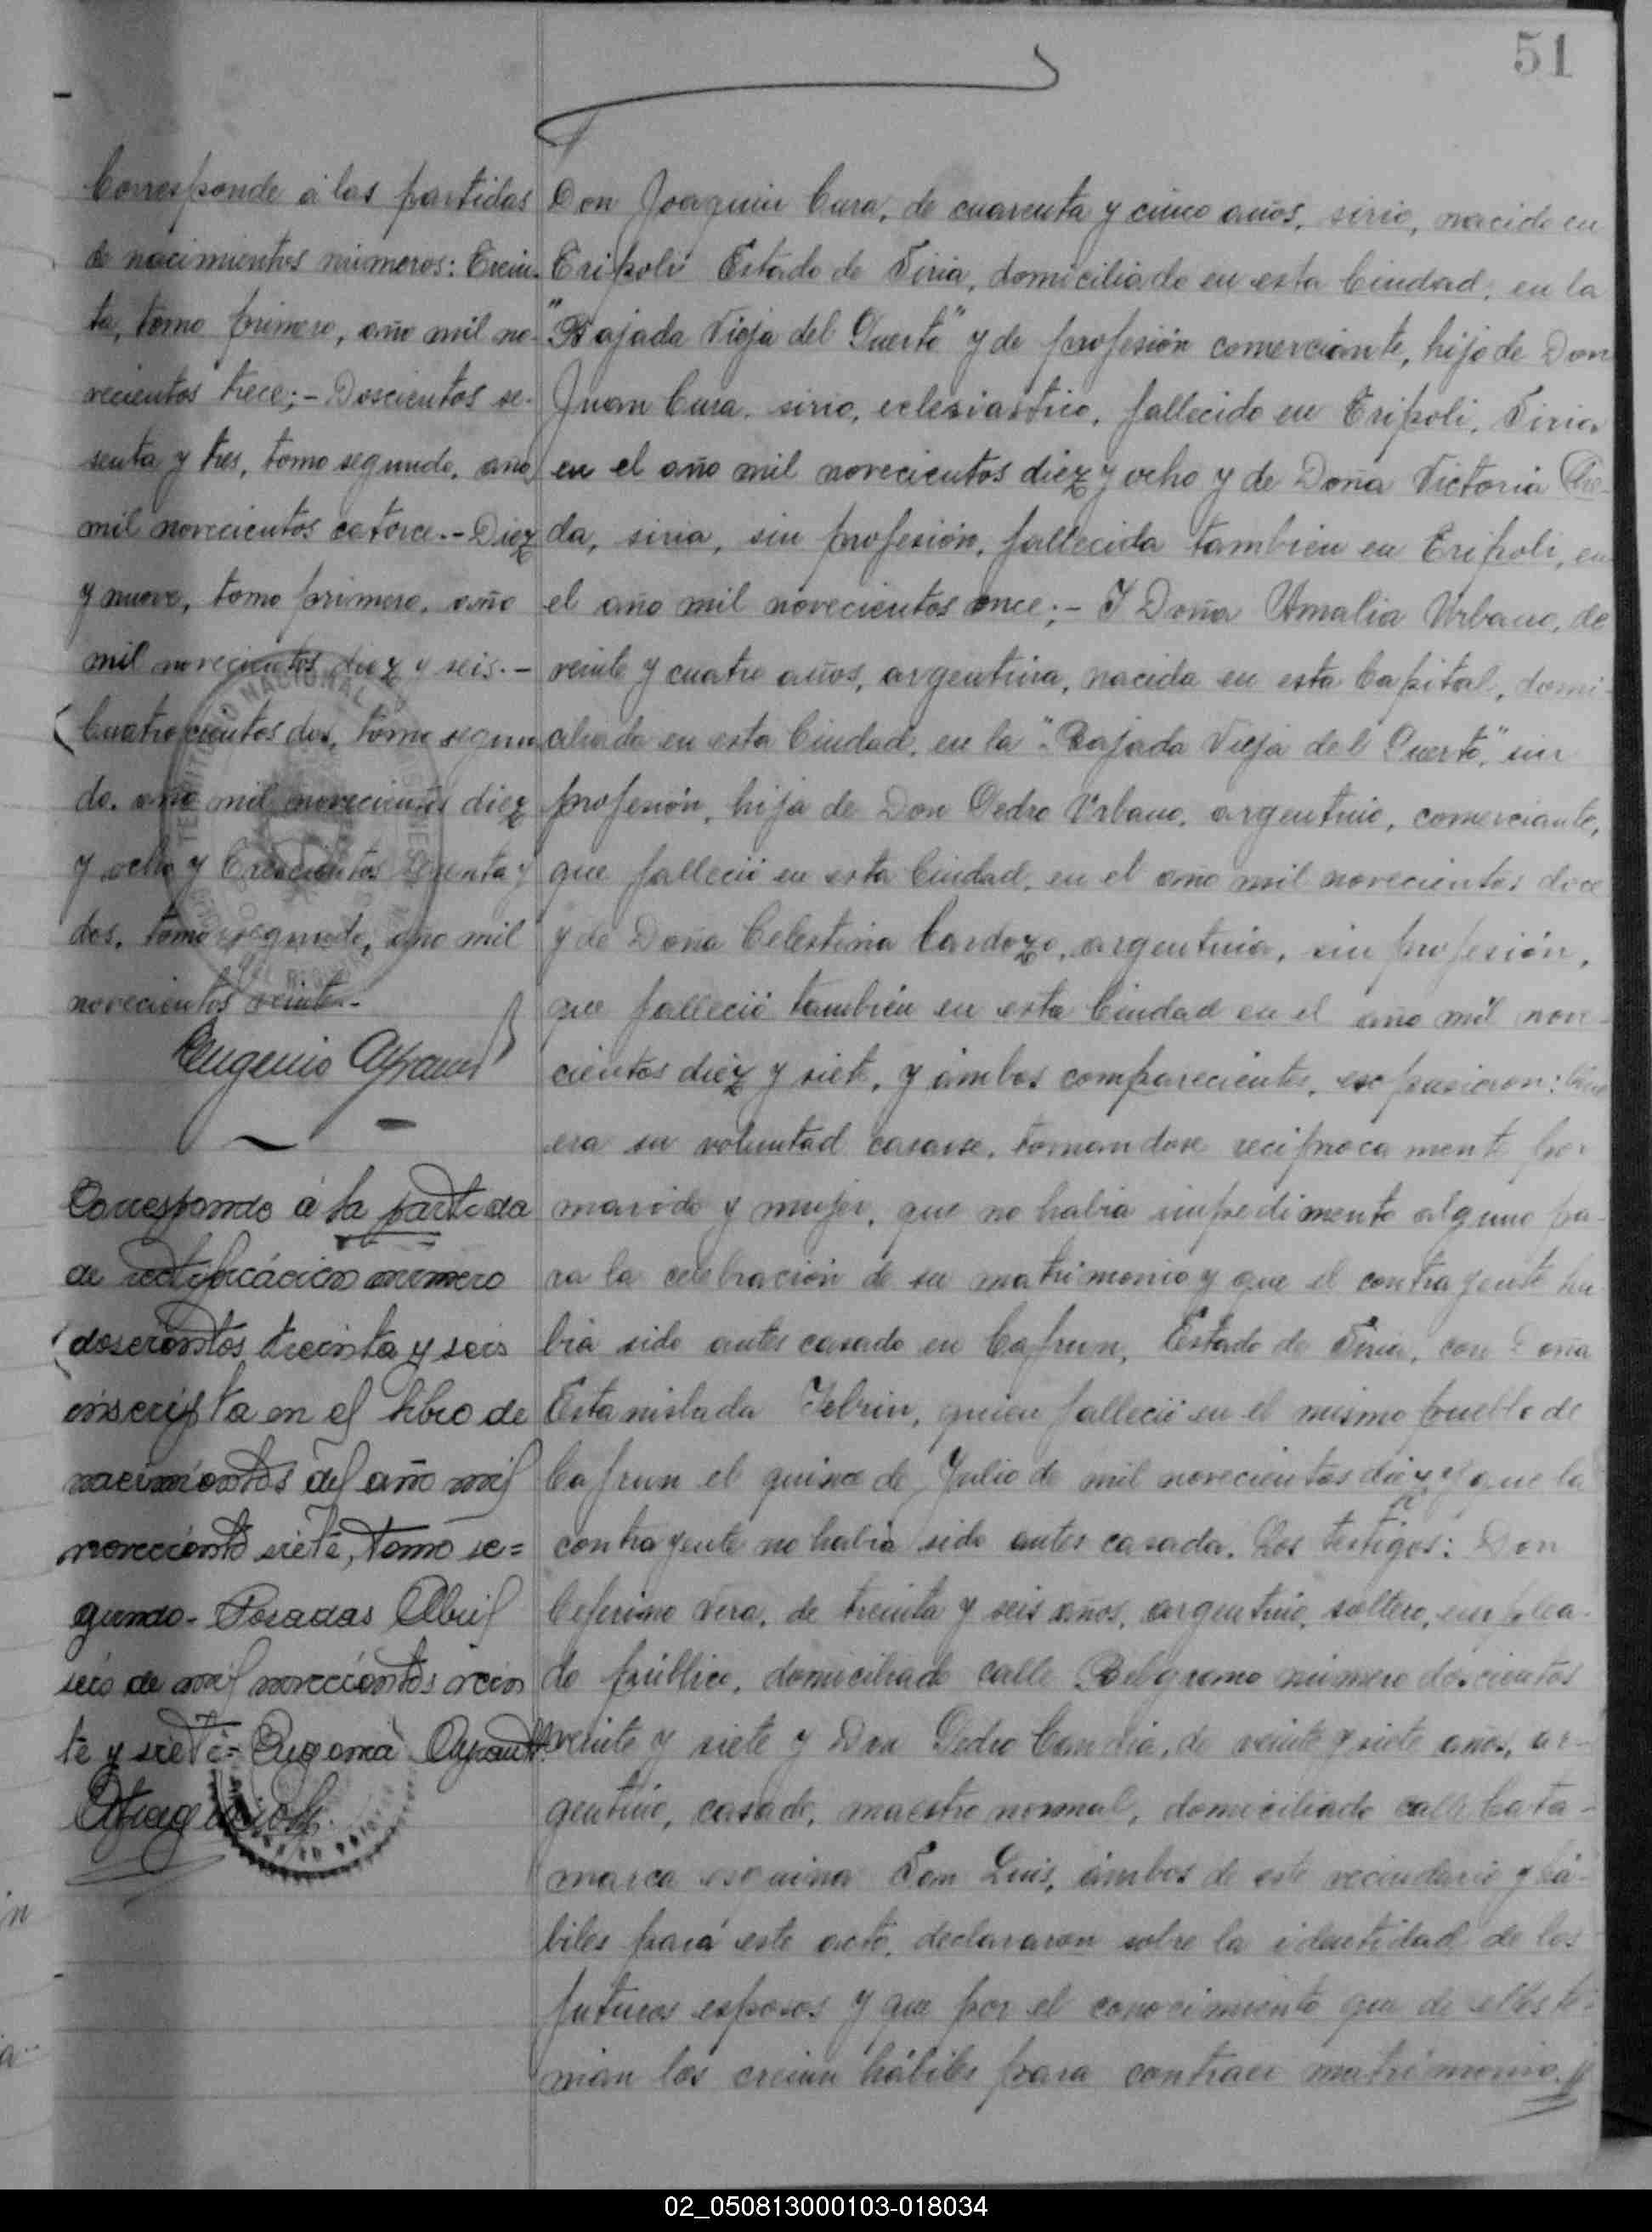 51
Corresponde á las partidas
de nacimientos números: Trein-
ta, tomo primero, año mil no-
vecientos trece;- Doscientos se-
senta y tres, tomo segundo, año
mil novecientos catorce.- Diez
y nueve, tomo primero, año
mil novecientos diez y seis.-
Cuatrocientos dos, tomo segun
do, año mil novecientos diez
y ocho y Trescientos y
dos, tomo segundo, año mil
novecientos veinte.-
Eugenio
Corresponde á la partida
de rectificación numero
doscientos treinta y seis
inscripta en el libro de
nacimientos del año mil
novecientos siete, tomo se=
gundo- Posadas Abril
seis de mil novecientos vein
te y siete=
Don Joaquin Cura, de cuarenta y cinco años, sirio, nacido en
Tripoli Estado de Siria, domiciliado en esta Ciudad, en la
"Bajada Vieja del Puerto" y de profesión comerciante, hijo de Don
Juan Cura, sirio, eclesiastico, fallecido en Tripoli, Siria
en el año mil novecientos diez y ocho y de Doña Victoria
da, siria, sin profesión, fallecida tambien en Tripoli, en
el año mil novecientos once;- Y Doña Amalia Urbano, de
veinte y cuatro años, argentina, nacida en esta Capital, domi-
ciliada en esta Ciudad, en la "Bajada Vieja del Puerto," sin
profesión, hija de Don Pedro Urbano, argentino, comerciante,
que falleció en esta Ciudad, en el año mil novecientos doce
y de Doña Celestina Cardozo, argentina, sin profesión,
que falleció también en esta Ciudad en el año mil nove-
cientos diez y siete, y ámbos comparecientes, expusieron: Que
era su voluntad casarse, tomandose reciprocamente por
marido y mujer, que no habia impedimento alguno pa-
ra la celebración de su matrimonio y que el contrayente ha
bia sido antes casado en Cafrun, Estado de Siria, con Doña
Estanislada Jebrin, quien falleció en el mismo pueblo de
Cafrun el quince de Julio de mil novecientos diez y que la
contrayente no habia sido antes casada. Los testigos: Don
Ceferino Vera, de treinta y seis años, argentino, soltero, emplea-
do público, domiciliado calle Belgrano número doscientos
veinte y siete y Don Pedro Candia, de veinte y siete años, ar-
gentino, casado, maestro normal, domiciliado calle Cata-
marca esquina San Luis, ámbos de este vecindario y há-
biles para este acto, declararon sobre la identidad de los
futuros esposos y que por el conocimiento que de ellos te-
nian los creian hábiles para contraer matrimonio. y
02_050813000103-018034